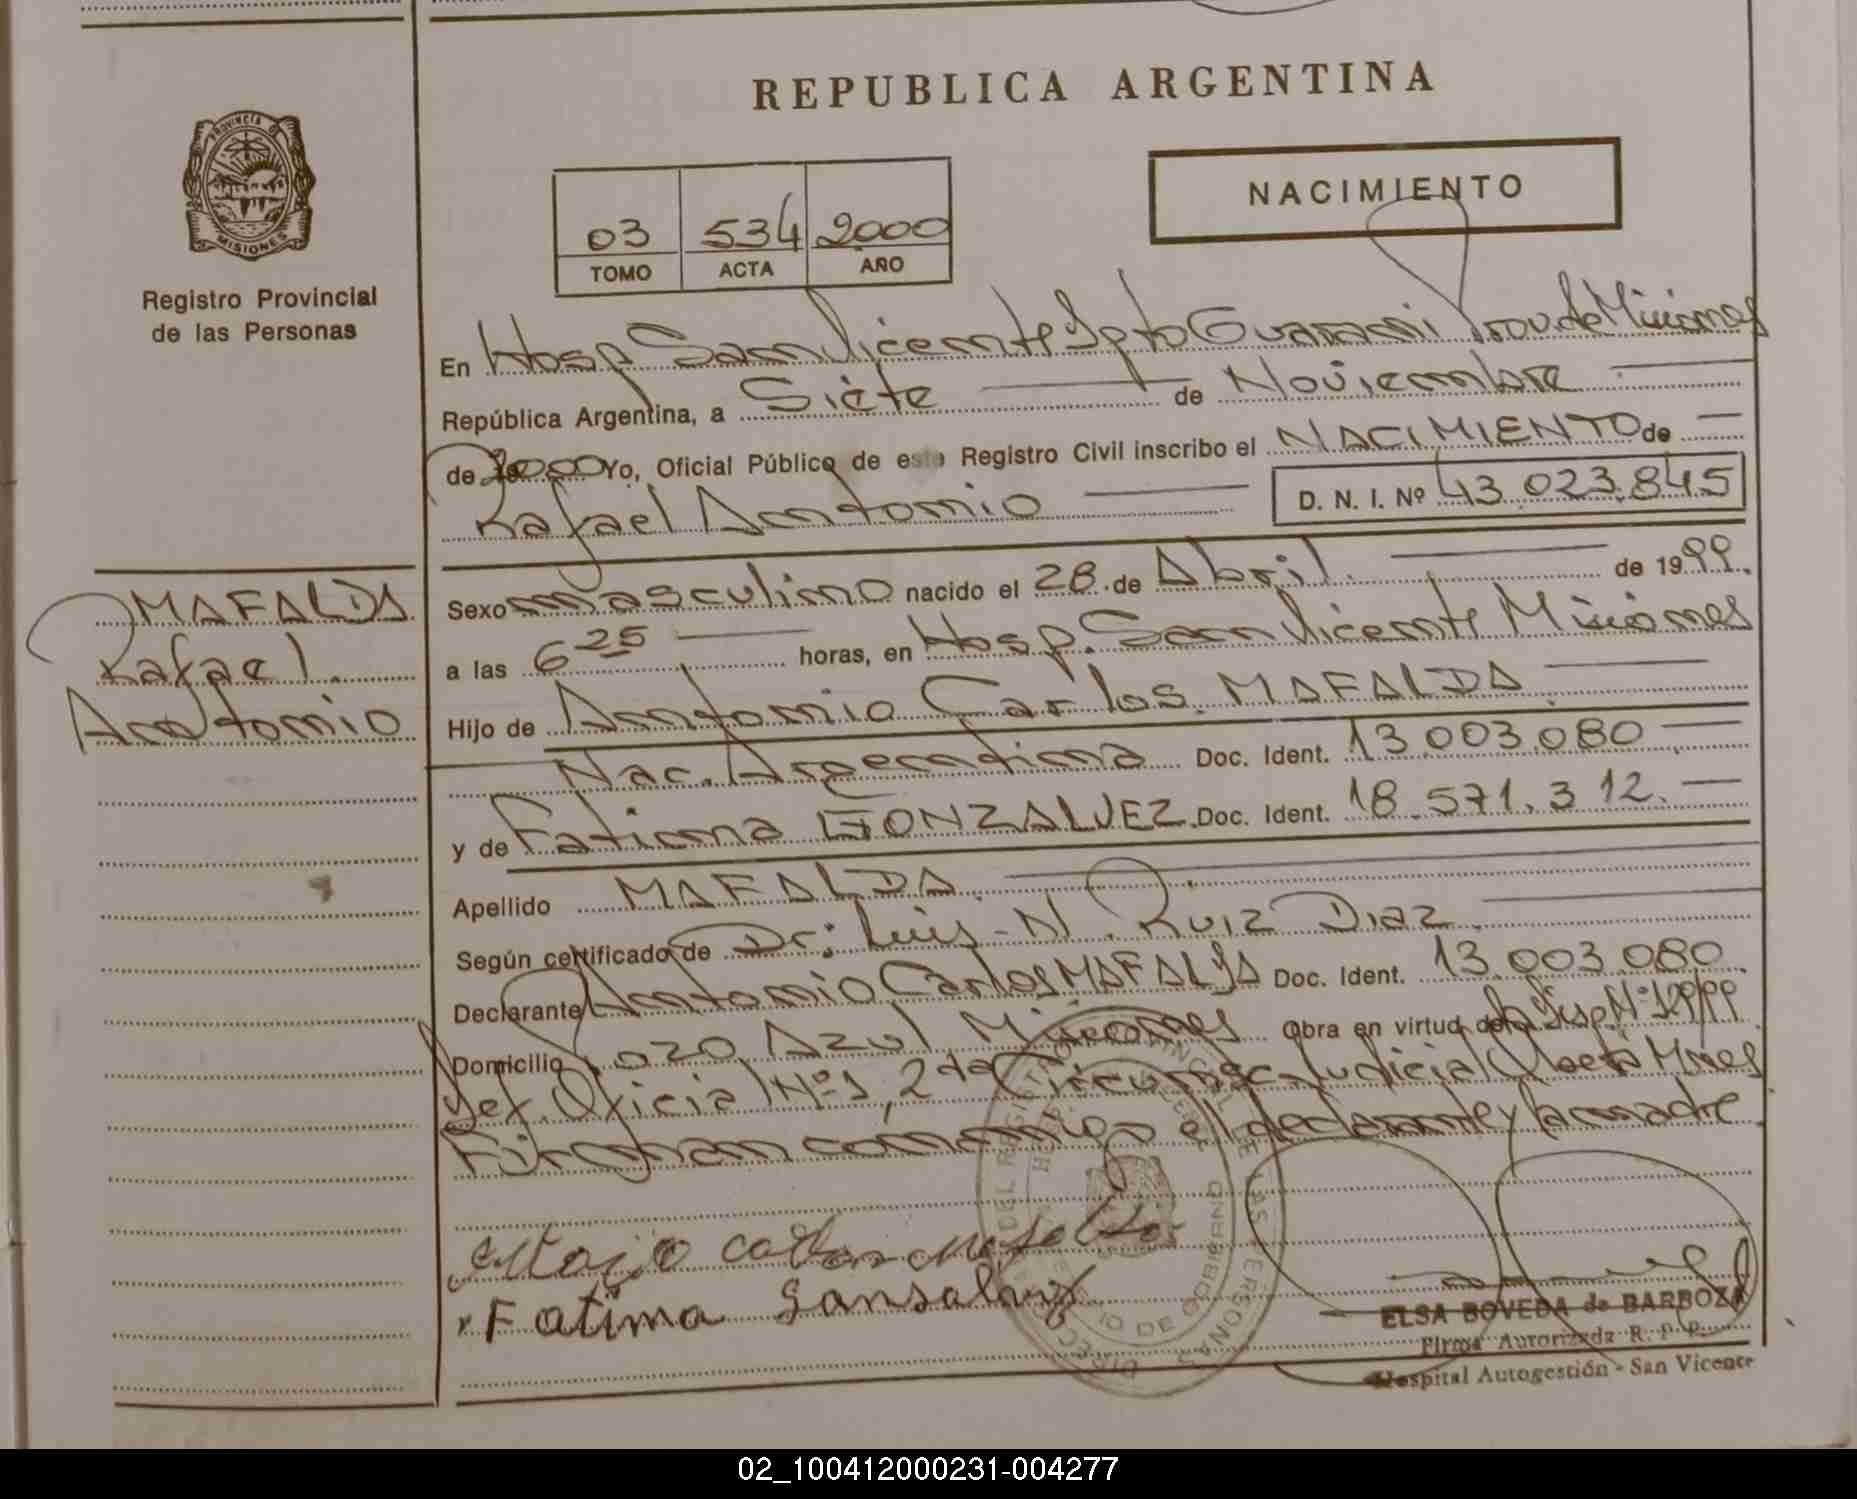 REPUBLICA ARGENTINA
PROVINCIA DE
MISIONES
Registro Provincial
de las Personas
NACIMIENTO
03 534 2000
TOMO ACTA AÑO
En Hosp San Vicente Dpto Guarani Prov. de Misiones
República Argentina, a Siete de Noviembre
de 2000 Yo, Oficial Público de este Registro Civil inscribo el NACIMIENTO de
Rafael Antonio D. N. I. Nº 43.023.845
MAFALDA
Rafael
Antonio
Sexo masculino nacido el 28 de Abril de 1999.
a las 6 25 horas, en Hosp. San Vicente Misiones
Hijo de Antonio Carlos MAFALDA
Nac. Argentina Doc. Ident. 13.003.080
y de Fatima GONZALVEZ. Doc. Ident. 18.571.312.
Apellido MAFALDA.
Según certificado de Dr: Luis N. Ruiz Diaz.
Declarante Antonio Carlos MAFALDA Doc. Ident. 13.003.080
Domicilio Pozo Azul Misiones Obra en virtud de la Disp Nº
Def. Oficial Nº 1, 2da Circunsc. Judicial Oberá Mnes
Firman conmigo el declarante y la madre.
Fatima Gansalvez
ELSA BOVEDA de BARBOZA
Firma Autorizada R. P. P.
Hospital Autogestión - San Vicente
02_100412000231-004277